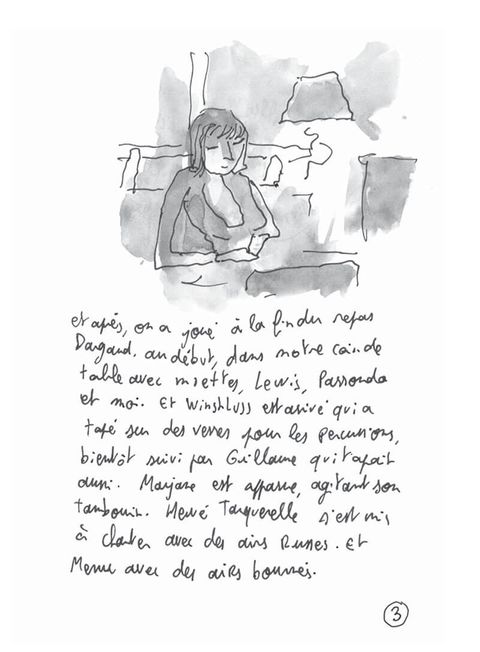 et après, on a joué à la fin du repas
Dargaud. au début, dans notre coin de
table avec miettes, Lewis, Passondo
et moi. Et Winshluss est arivé qui a
tapé sur des verres pour les percussions,
bientôt suivi par Guillaume qui tapait
aussi. Marjane est apparue, agitant son
tambourin. Hervé Tanquerelle s'est mis
à chanter avec des airs Russes. Et
Menu avec des airs bourrés.
3